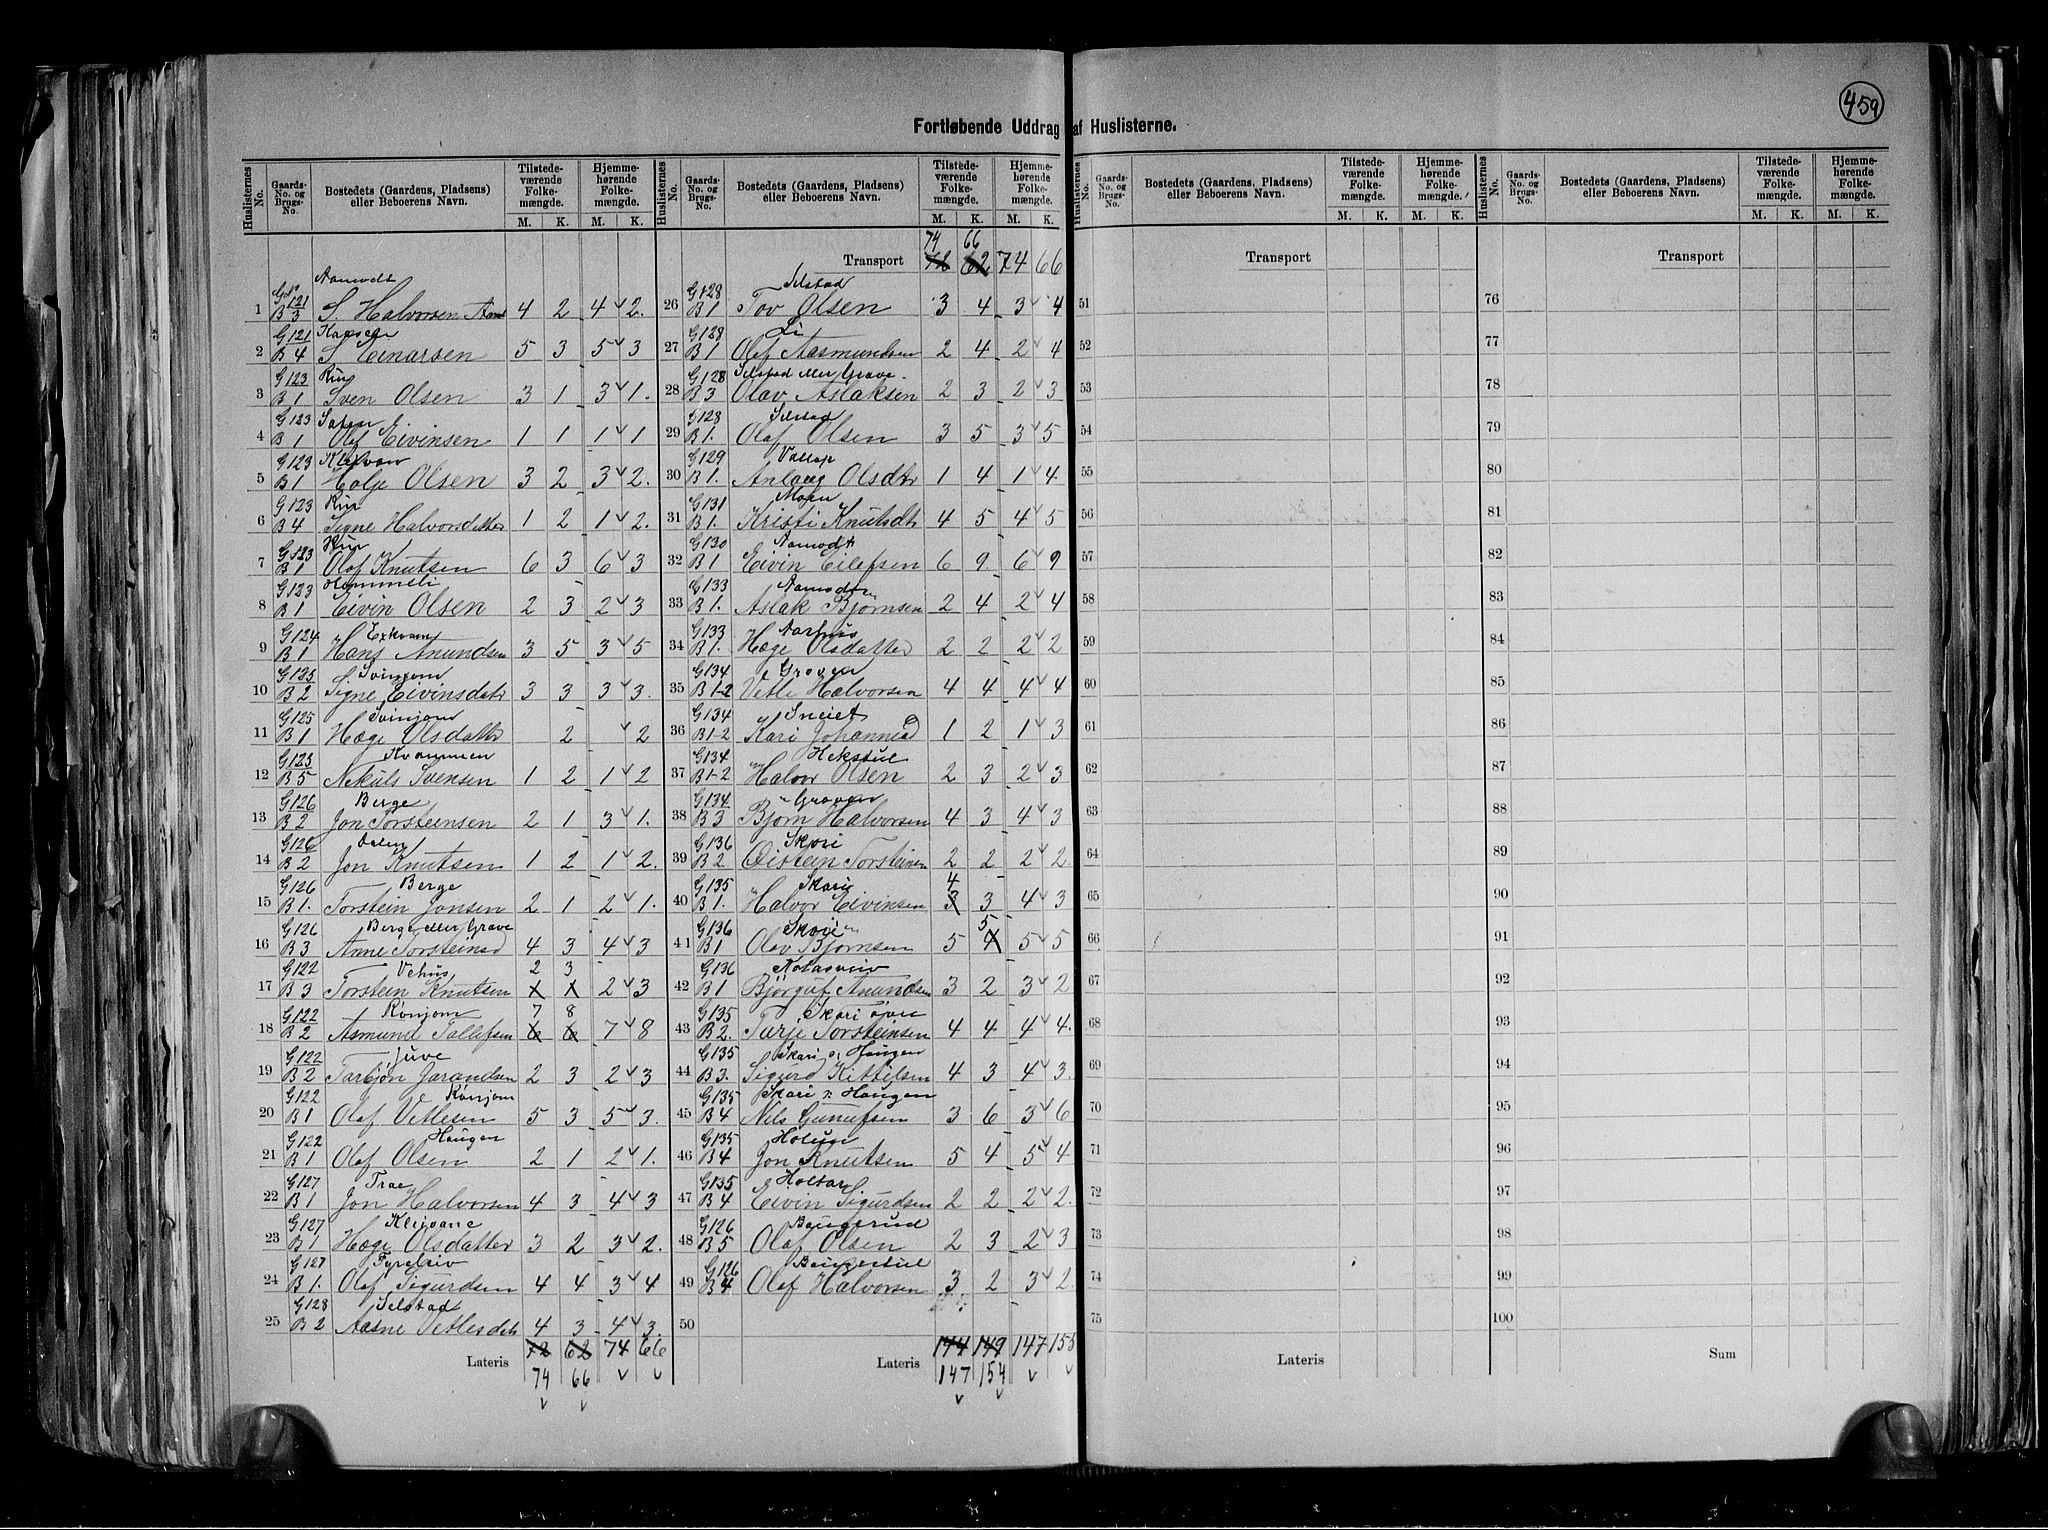 459
Fortløbende Uddrag af Huslisterne.
Huslisternes No. Gaards-No. og Brugs-No. Bostedets (Gaardens, Pladsens) eller Beboerens Navn. Tilstedeværende Folkemængde. M. K. Hjemmehørende Folkemængde. M. K.
Aamodt
1 G 121 B 3 S. Halvorsen 4 2 4 2.
2 G 121 B 4 S Einarsen 5 3 5 3
3 G 123 B 1 Sven Olsen 3 1 3 1.
4 G 123 B 1 Olaf Eivinsen 1 1 1 1
5 G 123 B 1 Holje Olsen 3 2 3 2.
6 G 123 B 4 Signe Halvorsdatter 1 2 1 2.
7 G 123 B 1 Olaf Knutsen 6 3 6 3
Hommeli
8 G 123 B 1 Eivin Olsen 2 3 2 3
9 G 124 B 1 Hans Anundsen 3 5 3 5
10 G 125 B 2 Signe Eivinsdatr 3 3 3 3.
Svinjom
11 G 125 B 1 Hæge Olsdattr 2 2
Kvammen
12 G 125 B 5 Nekuls Svensen 1 2 1 2
Berge
13 G 126 B 2 Jon Torsteinsen 2 1 3 1.
14 G 126 B 2 Jon Knutsen 1 2 1 2.
Berge
15 G 126 B 1. Torstein Jonsen 2 1 2 1.
Berge eller Grave
16 G 126 B 3 Anne Torsteinsd 4 3 4 3
Vehus 2 3
17 G 122 B 3 Torstein Knutsen 2 3
Rønjom 7 8
18 G 122 B 2 Asmund Tallefsen 6 6 7 8
Juve
19 G 122 B 2 Tarbjøn Jarandsen 2 3 2 3
Rønjom
20 G 122 B 1 Olaf Vetlesen 5 3 5 3.
Haugen
21 G 122 B 1 Olaf Olsen 2 1 2 1.
Trae
22 G 127 B 1 Jon Halvorsen 4 3 4 3
Kleivane
23 G 127 B 1 Hæge Olsdatter 3 2 3 2.
24 G 127 B 1. Olaf Sigurdsen 4 4 3 4
Selstad
25 G 128 B 2 Aasne Vetlesdatr 4 3 4 3.
Lateris 72 62 74 66
74 66
Huslisternes No. Gaards-No. og Brugs-No. Bostedets (Gaardens, Pladsens) eller Beboerens Navn. Tilstedeværende Folkemængde. M. K. Hjemmehørende Folkemængde. M. K.
74 66
Transport 72 62 74 66
Selstad
26 G 128 B 1 Tov Olsen 3 4 3 4
Li
27 G 128 B 1 Olaf Aasmundsen 2 4 2 4
Selstad eller Grave
28 G 128 B 3 Olav Aslaksen 2 3 2 3
Selstad
29 G 128 B 1. Olaf Olsen 3 5 3 5
30 G 129 B 1. Anlaug Olsdtr 1 4 1 4
Moen
31 G 131 B 1. Kristi Knutsdtr 4 5 4 5
Aamodt
32 G 130 B 1 Eivin Eilefsen 6 9 6 9
33 G 133 B 1. Aslak Bjørnsen 2 4 2 4
Aarhus
34 G 133 B 1. Hæge Olsdatter 2 2 2 2
Graven
35 G 134 B 1-2 Vetle Halvorsen 4 4 4 4
Sneiet
36 G 134 B 1-2 Kari Johannesd 1 2 1 3
Hekstul
37 G 134 B 1-2 Halvor Olsen 2 3 2 3
Graven
38 G 134 B 3 Bjørn Halvorsen 4 3 4 3
Skori
39 G 136 B 2 Øistein Torsteinsen 2 2 2 2.
Skori 4
40 G 135 B 1. Halvor Eivinsen 3 3 4 3
Skori 5
41 G 136 B 1 Olav Bjørnsen 5 4 5 5
42 G 136 B 1 Bjørguf Anundsen 3 2 3 2
Skori øvre
43 G 135 B 2. Tarje Torsteinsen 4 4 4 4.
Skari o. Haugen
44 G 135 B 3. Sigurd Kittilsen 4 3 4 3.
Skari n. Haugen
45 G 135 B 4 Nils Gunufsen 3 6 3 6
46 G 135 B 4 Jon Knutsen 5 4 5 4
Holtar
47 G 135 B 4 Eivin Sigurdsen 2 2 2 2.
Baugerud
48 G 126 B 5 Olaf Olsen 2 3 2 3
Baugestul
49 G 126 B 4 Olaf Halvorsen 3 2 3 2.
50
Lateris 144 149 147 155
147 154
Huslisternes No. Gaards-No. og Brugs-No. Bostedets (Gaardens, Pladsens) eller Beboerens Navn. Tilstedeværende Folkemængde. M. K. Hjemmehørende Folkemængde. M. K.
Transport
51
52
53
54
55
56
57
58
59
60
61
62
63
64
65
66
67
68
69
70
71
72
73
74
75
Lateris
Huslisternes No. Gaards-No. og Brugs-No. Bostedets (Gaardens, Pladsens) eller Beboerens Navn. Tilstedeværende Folkemængde. M. K. Hjemmehørende Folkemængde. M. K.
Transport
76
77
78
79
80
81
82
83
84
85
86
87
88
89
90
91
92
93
94
95
96
97
98
99
100
Sum